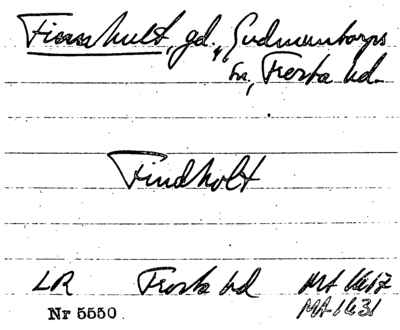 Finnhult, gd., Gudmuntorps
sn, Frosta hd.
Findholt
LR Frosta hd MA 1617
MA 1631
Nr 5550